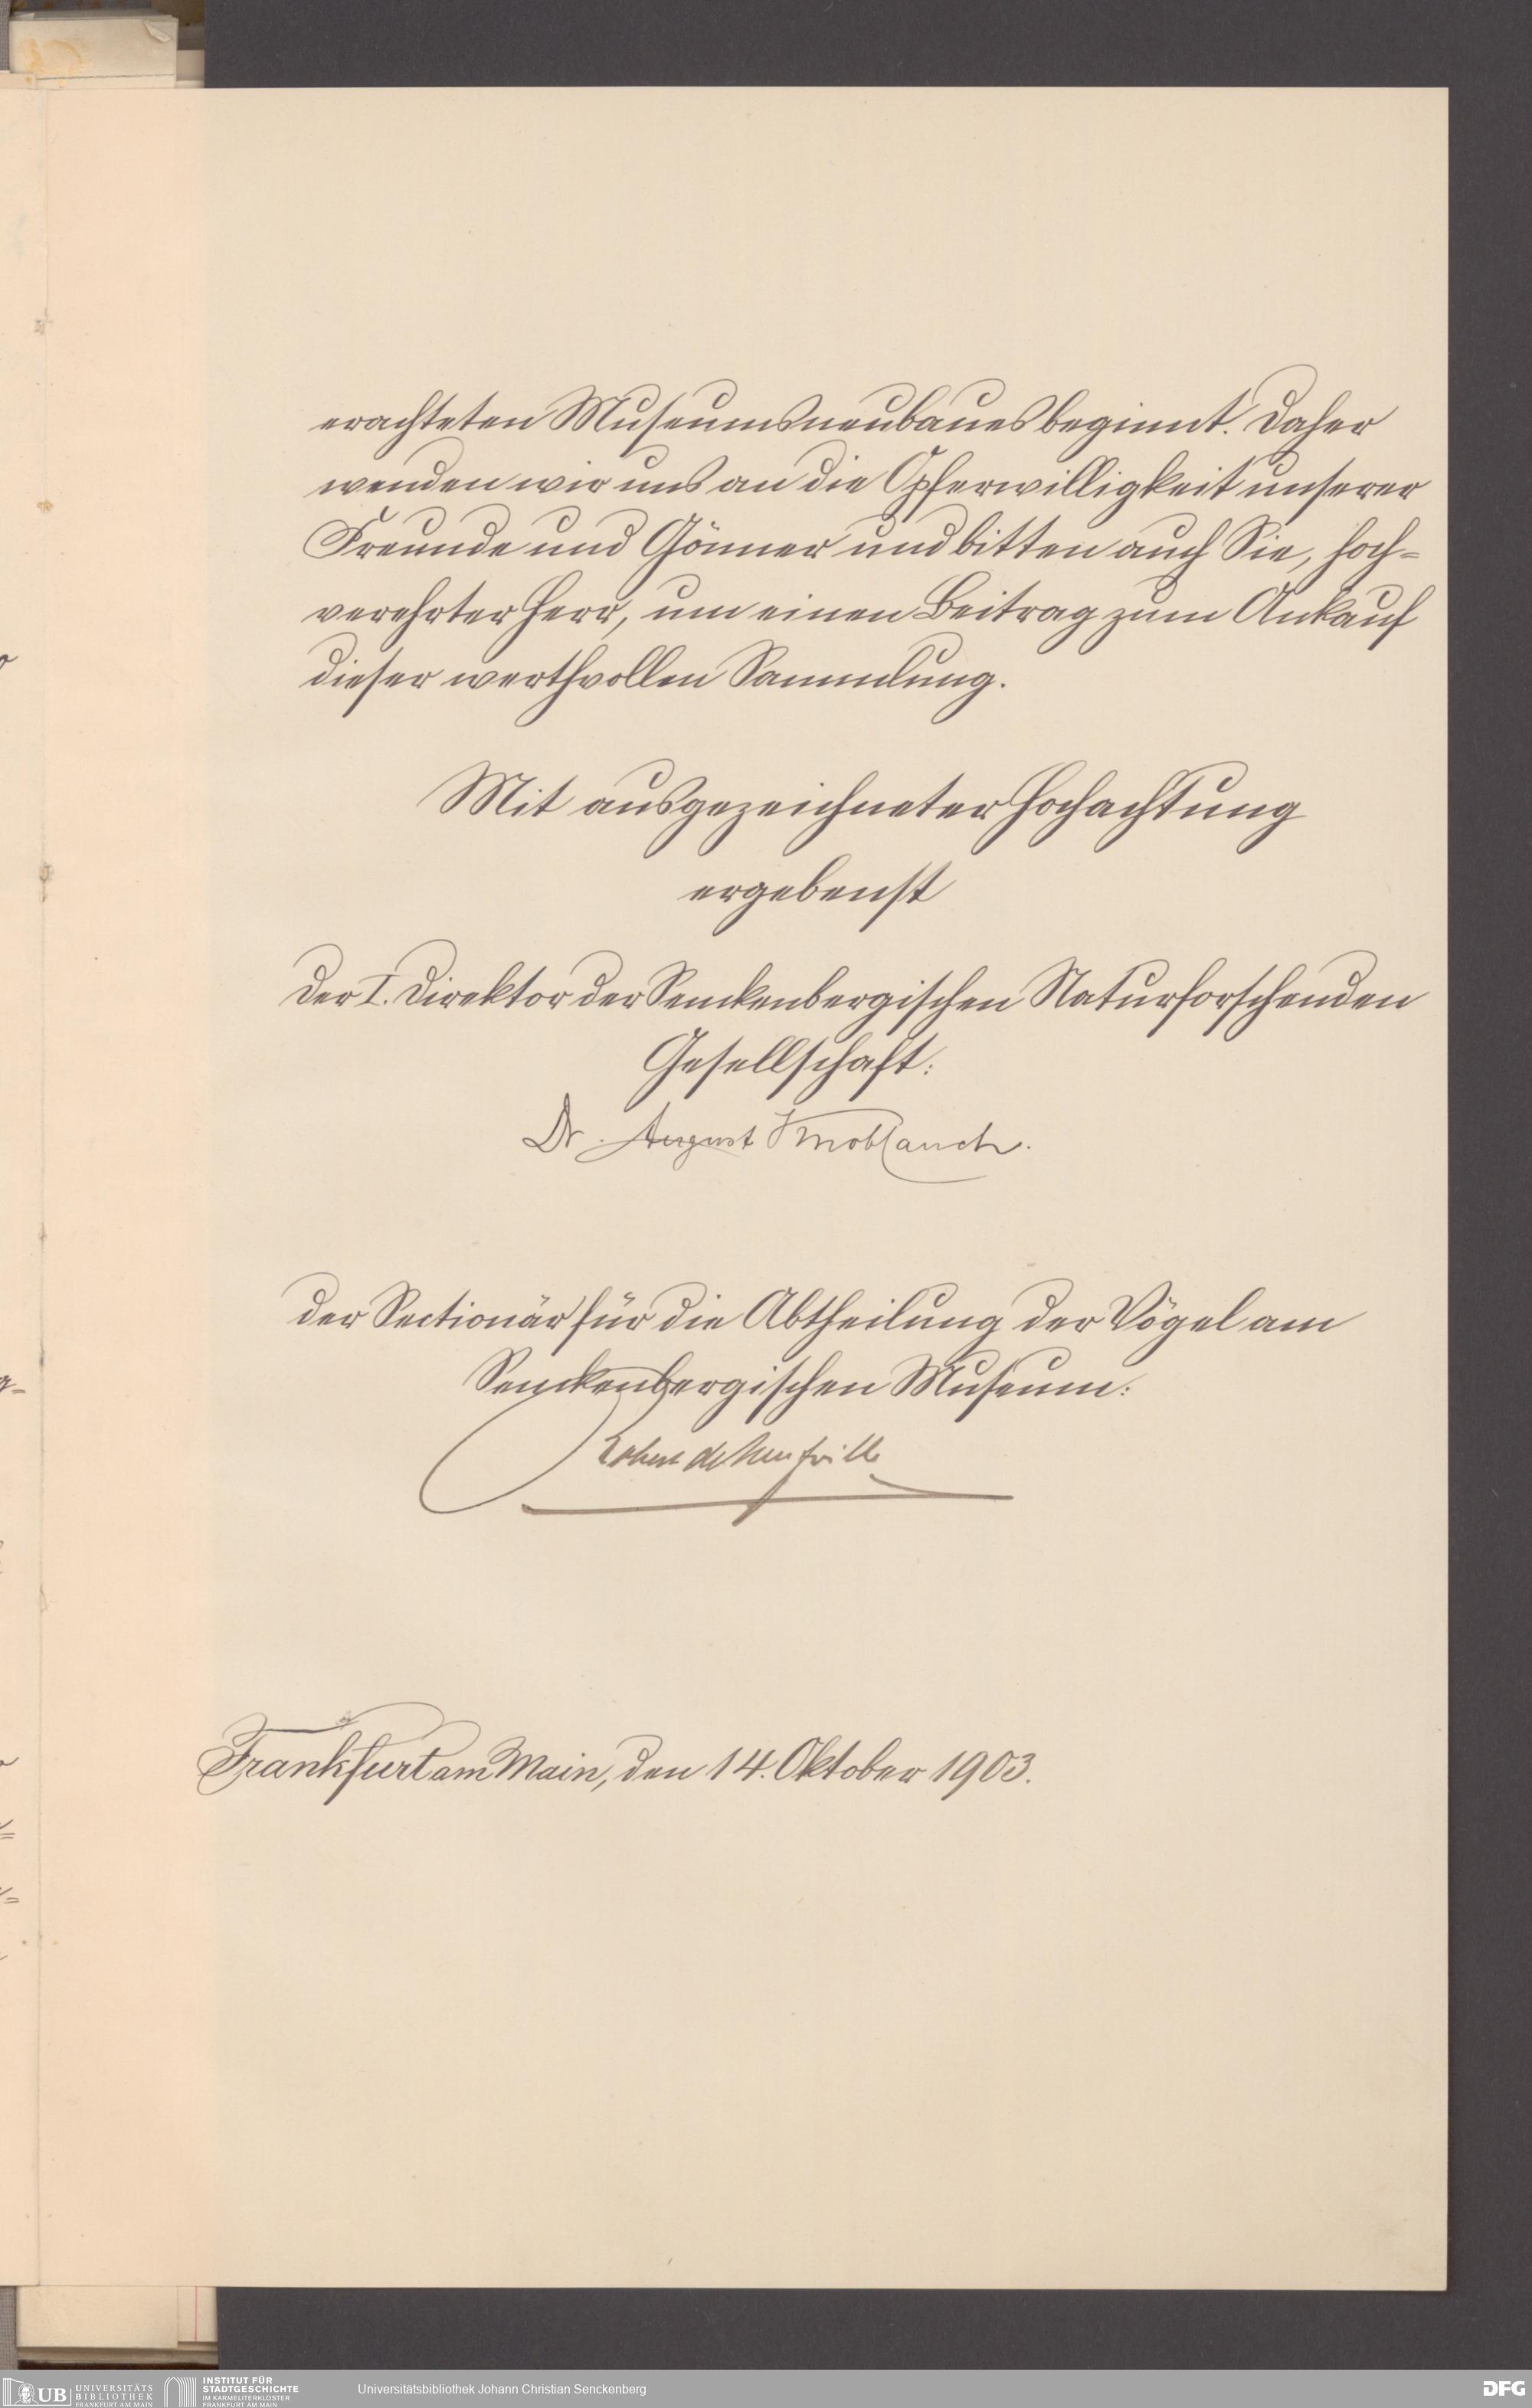 erachteten Museumsneubaues beginnt. Daher
wenden wir uns an die Opferwilligkeit unserer
Freunde und Gönner und bitten auch Sie, hoch=
verehrter Herr, um einen Beitrag zum Ankauf
dieser werthvollen Sammlung.
Mit ausgezeichneter Hochachtung
ergebenst
Der I. Direktor der Senckenbergischen Naturforschenden
Gesellschaft:
Dr. August Knoblauch.
Der Sectionär für die Abtheilung der Vögel am
Senckenbergischen Museum:
Robert de Neufville
Frankfurt am Main, den 14. Oktober 1903.
UB UNIVERSITÄTS
BIBLIOTHEK
FRANKFURT AM MAIN
INSTITUT FÜR
STADTGESCHICHTE
IM KARMELITERKLOSTER
FRANKFURT AM MAIN
Universitätsbibliothek Johann Christian Senckenberg
DFG